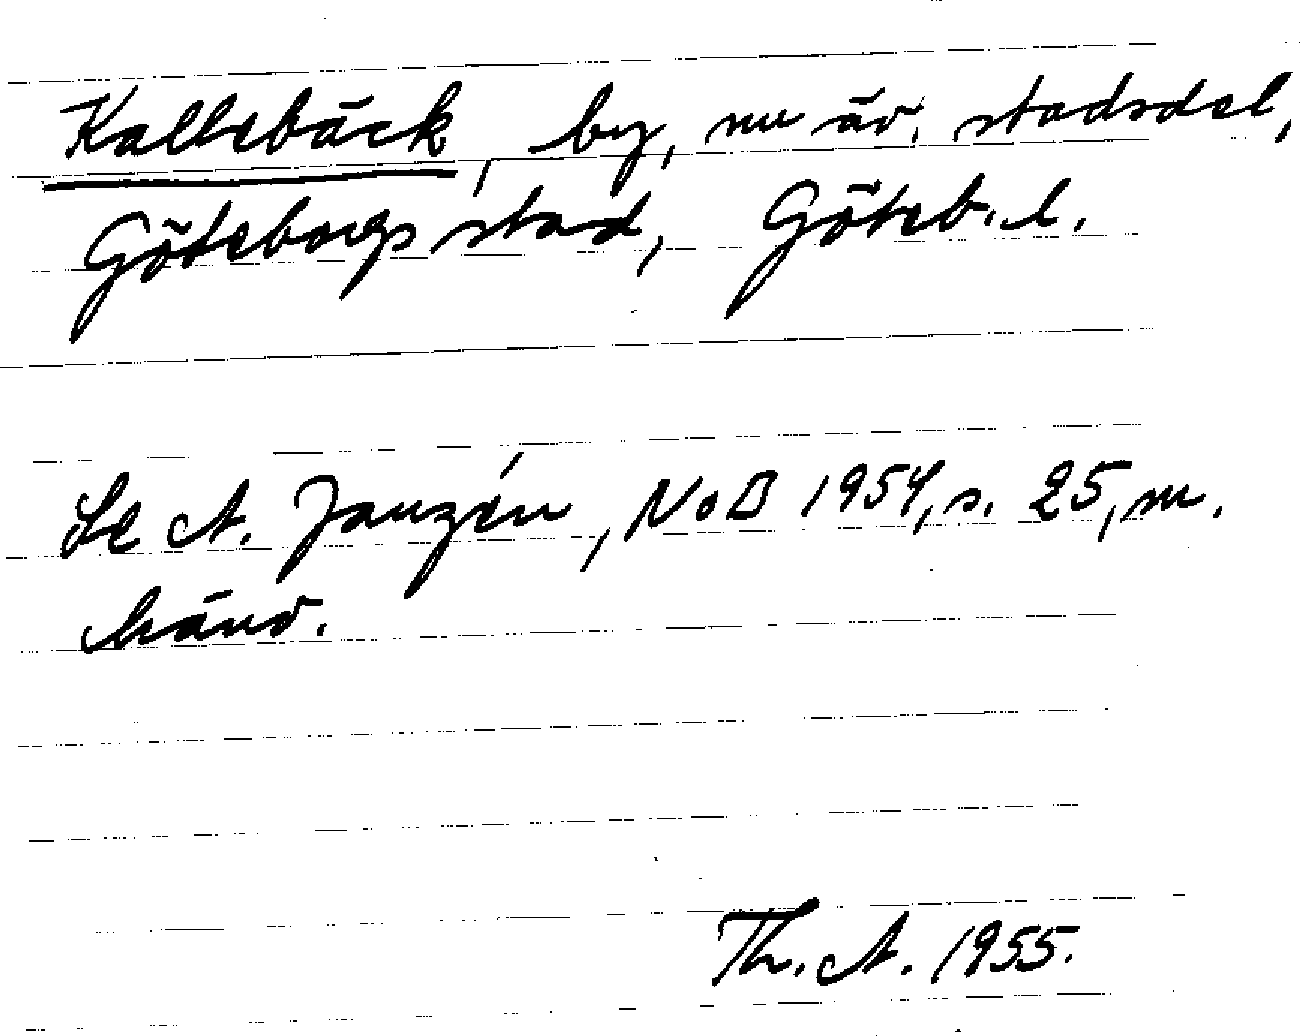 Kallebäck, by, nu äv. stadsdel,
Göteborgs stad, Göteb. l.
Se A. Janzén, NoB 1954, s. 25, m.
hänv.
Th. A. 1955.